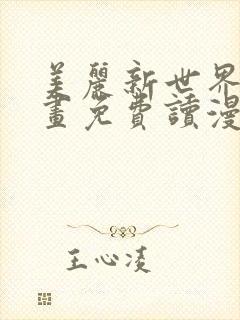 美麗新世界
畫免費讀漫
王心凌